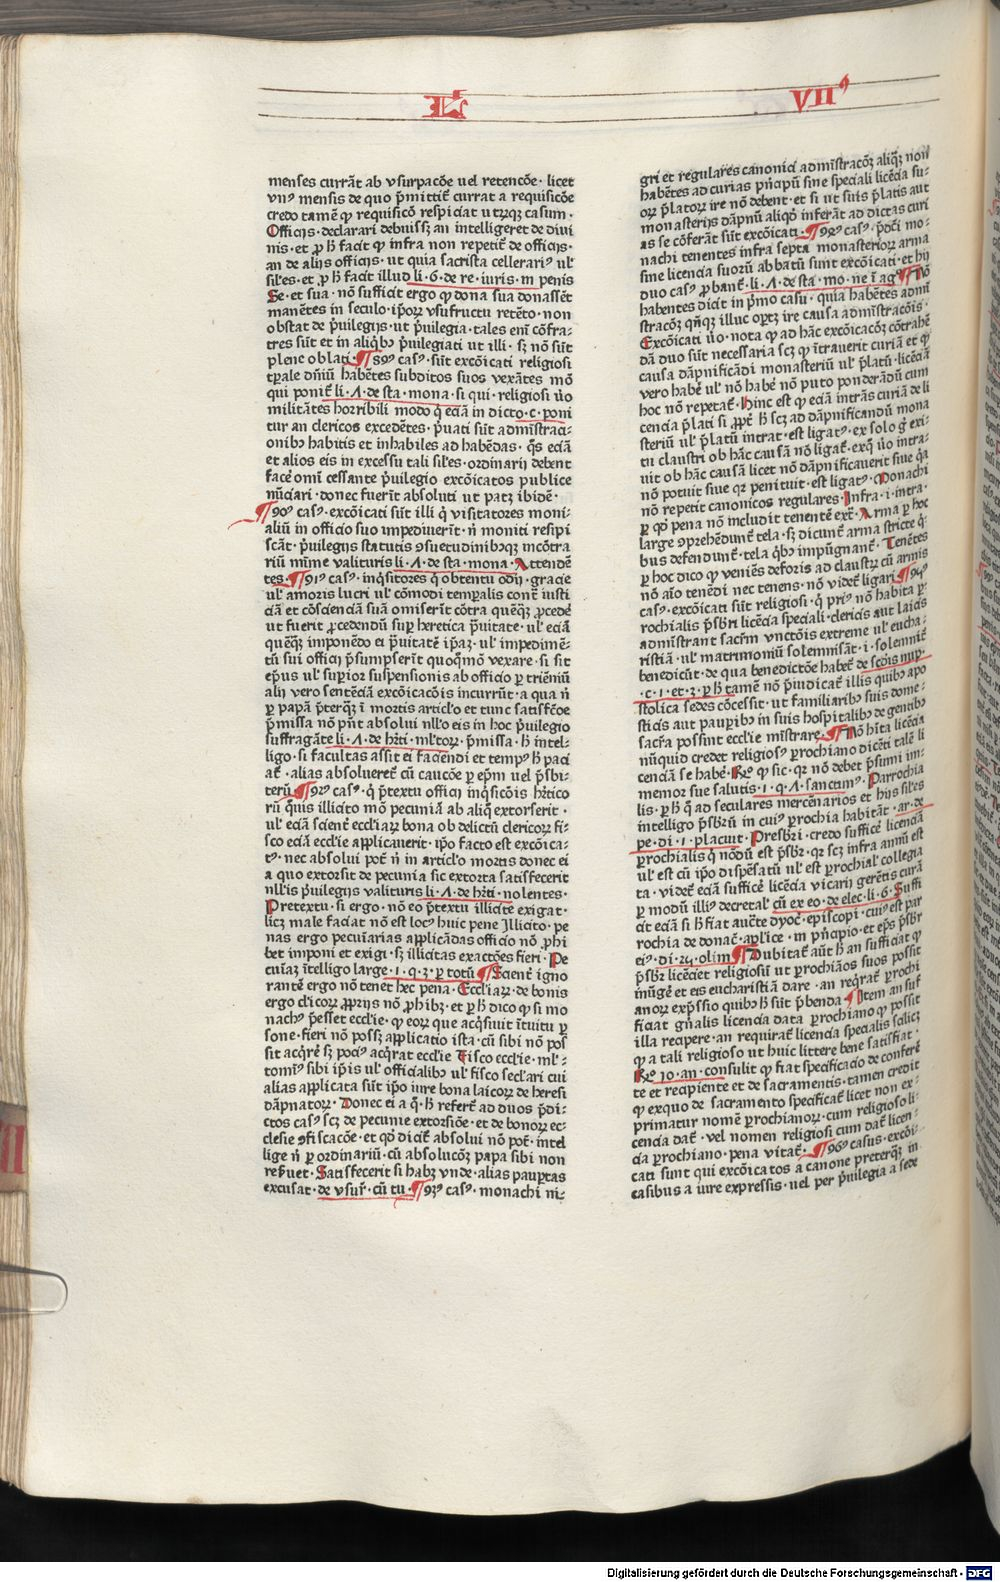 L VIIꝰ
menses currãt ab vsurpacõe uel retencõe · licet
vnꝰ mensis de quo p̃mittit̃ currat a requisicõe
credo tamẽ ꝙ requisicõ respiciat utrũqꝫ casum ·
Officijs · declarari debuissꝫ an intelligeret de diui
nis · et ꝓ h̃ facit ꝙ infra non repetit̃ de officijs ·
an de alijs officijs · ut quia sacrista cellerariꝰ ul̃
sil̃es · et ꝓ h̃ facit illud li · 6 · de re · iuris · in penis
Se · et sua · nõ sufficit ergo ꝙ dona sua donassẽt
manẽtes in seculo · ip̃oꝝ vsufructu retẽto · non
obstat de p̃uilegijs · ut p̃uilegia · tales enĩ cõfra-
tres sũt et in aliq̃bꝰ p̃uilegiati ut illi · sꝫ nõ sũt
plene oblati · ¶ 89ꝰ casꝰ · sũt excõicati religiosi
tp̃ale dñiũ habẽtes subditos suos vexãtes mõ
qui ponit̃ li · Λ · de sta · mona · si qui · religiosi ṽo
militãtes horribili modo q̃ eciã in dicto · c · poni
tur an clericos excedẽtes · p̃uati sũt admĩstraci-
onibꝰ habitis et inhabiles ad habẽdas · q̃s eciã
et alios eis in excessu tali sil̃es · ordinarij debent
facẽ om̃i cessante p̃uilegio excõicatos publice
nũciari · donec fuerĩt absoluti ut patꝫ ibidẽ ·
¶ 90ꝰ casꝰ · excõicati sũt illi q̃ visitatores moni-
aliũ in officio suo impediuerĩt · ñ moniti resipi
scãt · p̃uilegijs statutis ꝯsuetudinibꝰqꝫ incõtra
riũ mĩme valituris li · Λ · de sta · mona · Attendẽ
tes · ¶ 91ꝰ casꝰ · inq̃sitores q̃ obtentu odij · gracie
ul̃ amoris lucri ul̃ cõmodi temp̃alis contͣ iusti
ciã et cõscienciã suã omiserĩt cõtra quẽqꝫ ꝓcedẽ
ut fuerit ꝓcedendũ sup̃ heretica p̃uitate · ul̃ eciã
quẽqꝫ imponẽdo ei p̃uitatẽ ip̃aꝫ · ul̃ impedimẽ-
tũ sui officij p̃sumpserĩt quoqͣmõ vexare · si sit
ep̃us ul̃ sup̃ior suspensionis ab officio ꝑ triẽniũ
alij vero sentẽciã excõicacõis incurrũt · a qua ñ
ꝑ papã p̃terqͣꝫ ĩ mortis articl̃o et tunc satisfc̃oe
p̃missa nõ pñt absolui nll̃o eis in hoc p̃uilegio
suffragãte li · Λ · de hr̃ti · ml̃torꝝ · p̃missa · h̃ intel-
ligo · si facultas assit ei faciendi et tempꝰ h̃ paci
at̃ · alias absolueret̃ cũ caucõe ꝑ ep̃m uel p̃sbi-
terũ · ¶ 92ꝰ casꝰ · q̃ p̃textu officij inq̃sicõis hr̃tico
rũ q̃uis illicito mõ pecuniã ab aliq̃ extorserit ·
ul̃ eciã scient̃ eccl̃iarꝝ bona ob delictũ clericorꝝ fi-
sco eciã eccl̃ie applicauerit · ip̃o facto est excõica-
tꝰ · nec absolui pot̃ ñ in articl̃o mortis donec ei
a quo extorsit de pecunia sic extorta satisfecerit
nll̃is p̃uilegijs valituris li · Λ · de hr̃ti · nolentes ·
Pretextu · si ergo · nõ eo p̃textu illicite exigat ·
licꝫ male faciat nõ est locꝰ huic pene Jllicito · pe
nas ergo pecuĩarias applicãdas officio nõ ꝓhi
bet imponi et exigi · sꝫ illicitas exactões fieri · Pe
cuĩaꝫ ĩtelligo large · 1 · q · 3 · ꝑ totũ ¶ Scient̃ igno
rantẽ ergo nõ tenet hec pena · Eccl̃iarꝝ · de bonis
ergo cl̃icorꝝ ꝓprijs nõ ꝓhibꝫ · et ꝑ h̃ dico ꝙ si mo
nachꝰ p̃esset eccl̃ie · ꝙ eorꝝ que acq̃siuit ĩtuitu ꝑ
sone · fieri nõ possꝫ applicatio ista · cũ sibi nõ pos
sit acq̃rẽ sꝫ pociꝰ acq̃rat eccl̃ie Fisco eccl̃ie · ml̃-
tomꝰ sibi ip̃is ul̃ officialibꝰ ul̃ fisco secl̃ari cui
alias applicata sũt ip̃o iure bona laicorꝝ de heresi
dãpnatorꝝ · Donec ei a q̃ · h̃ refert̃ ad duos p̃di-
ctos casꝰ scꝫ de pecunie extorsiõe · et de bonorꝝ ec-
clesie ꝯfiscacõe · et qð dicit̃ absolui nõ pot̃ · intel
lige ñ ꝑ ordinariũ · cũ absolucõꝫ papa sibi non
reseruet · Satisfecerit si habꝫ vnde · alias paup̃tas
excusat · de vsur̃ · cũ tu · ¶ 93ꝰ casꝰ · monachi ni-
gri et regulares canonici admĩstracõꝫ aliq̃ꝫ non
habẽtes ad curias p̃ncipũ sine speciali licẽcia su-
orꝝ p̃latorꝝ ire nõ debent · et si ut suis p̃latis aut
monasterijs dãpnũ aliqð inferãt ad dictas curi
as se cõferãt sũt excõicati · ¶ 94ꝰ casꝰ · p̃dc̃i mo-
nachi tenentes infra septa monasteriorꝝ arma
sine licencia suorũ abbatũ sunt excõicati · et hij
duo casꝰ ꝓbant̃ · li · Λ · de sta · mo · ne ĩ ag̃ ¶ Nõ
habentes dicit in p̃mo casu · quia habẽtes admĩ
stracõꝫ qñqꝫ illuc oportꝫ ire causa admĩstracõis ·
Excõicati ṽo · nota ꝙ ad hãc excõicacõꝫ cõtrahẽ
dã duo sũt necessaria scꝫ ꝙ ĩtrauerit curiã et ꝙ
causa dãpnificãdi monasteriũ ul̃ p̃latũ · licẽciã
vero habẽ ul̃ nõ habẽ nõ puto ponderãdũ cum
hoc nõ repetat̃ · hinc est ꝙ eciã intrãs curiã de li
cencia p̃lati si ꝓpt̃ h̃ scꝫ ad dãpnificandũ mona
steriũ ul̃ p̃latũ intrat · est ligatꝰ · ex solo g̃ exi-
tu claustri ob hãc causã nõ ligat̃ · exq̃ ṽo intra-
uit ob hãc causã licet nõ dãpnificauerit siue q̃a
nõ potuit siue qꝛ penituit · est ligatꝰ · Monachi
nõ repetit canonicos regulares · Infra · i · intra ·
ꝑ qð pena nõ includit tenentẽ ext̃ · Arma ꝑ hoc
large ꝯprehẽdunt̃ tela · sꝫ dicunt̃ arma stricte q̃-
bus defendunt̃ · tela q̃bꝰ impũgnant̃ · Tenẽtes
ꝑ hoc dico ꝙ veniẽs deforis ad claustrꝝ cũ armis
nõ aĩo tenẽdi nec tenens · nõ videt̃ ligari ¶ 95ꝰ
casꝰ · excõicati sũt religiosi · q̃ priꝰ nõ habita ꝑ-
rochialis p̃sbr̃i licẽcia speciali · clericis aut laicis
admĩstrant sacr̃m vnctõis extreme ul̃ eucha-
ristiã · ul̃ matrimoniũ solemnisãt · i · solemnit̃
benedicũt · de qua benedictõe habet̃ de scðis nup̃ ·
· c · 1 · et · 3 · ꝑ h̃ tamẽ nõ p̃iudicat̃ illis quibꝰ apo
stolica sedes cõcessit · ut familiaribꝰ suis dome-
sticis aut paup̃ibꝰ in suis hospitalibꝰ degentibꝰ
sacr̃a possint eccl̃ie mĩstrare · ¶ Nõ hĩta licẽcia
nũquid credet religiosꝰ ꝑrochiano dicẽti talẽ li
cenciã se habẽ · Rͦ ꝙ sic · qꝛ nõ debet p̃sumi im-
memor sue salutis · 1 · q · Λ · sanctimꝰ · Parrochia
lis · ꝑ h̃ q̃ ad seculares mercẽnarios et hijs sil̃es
intelligo p̃sbr̃ũ in cuiꝰ ꝑrochia habitãt · ar · de
pe · di · 1 · placuit · Presbr̃i · credo sufficẽ licenciã
ꝑrochialis q̃ nõdũ est p̃sbr̃ · qꝛ scꝫ infra annũ est
ul̃ est cũ ip̃o disp̃esatũ ul̃ est ꝑrochial̃ collegia
ta · videt̃ eciã sufficẽ licẽcia vicarij gerẽtis curã
ꝑ modũ illiꝰ decretal̃ cũ ex eo · de elec · li · 6 · Suffi
cit eciã si h̃ fiat auct̃e dyoc̃ · episcopi · cuiꝰ est par
rochia de donac̃ · apl̃ice · in p̃ncipio · et ep̃s p̃sbr̃
eiꝰ · di · 24 · olim ¶ Dubitat̃ aũt h̃ an sufficiat ꝙ
p̃sbr̃ licẽciet religiosũ ut ꝑrochiãos suos possit
inũgẽ et eis eucharistiã dare · an req̃rat̃ ꝑrochi
anorꝝ exp̃ssio quibꝰ h̃ sũt p̃benda ¶ Item an suf
ficiat gñalis licencia data ꝑrochiano ꝙ possit
illa recipere · an requirat̃ licencia specialis scilicꝫ
ꝙ a tali religioso ut huic littere bene satisfiat ·
Rͦ · Jo · an · consulit ꝙ fiat specificacio de conferẽ
te et recipiente et de sacramentis · tamen credit
ꝙ exquo de sacramento specificat̃ licet non ex-
primatur nomẽ ꝑrochianorꝝ · cum religioso li-
cencia dat̃ · vel nomen religiosi cum dat̃ licen-
cia ꝑrochiano · pena vitat̃ · ¶ 96ꝰ casus · excõi-
cati sunt qui excõicatos a canone preterqͣꝫ in
casibus a iure expressis · uel per p̃uilegia a sede
Digitalisierung gefördert durch die Deutsche Forschungsgemeinschaft - DFG